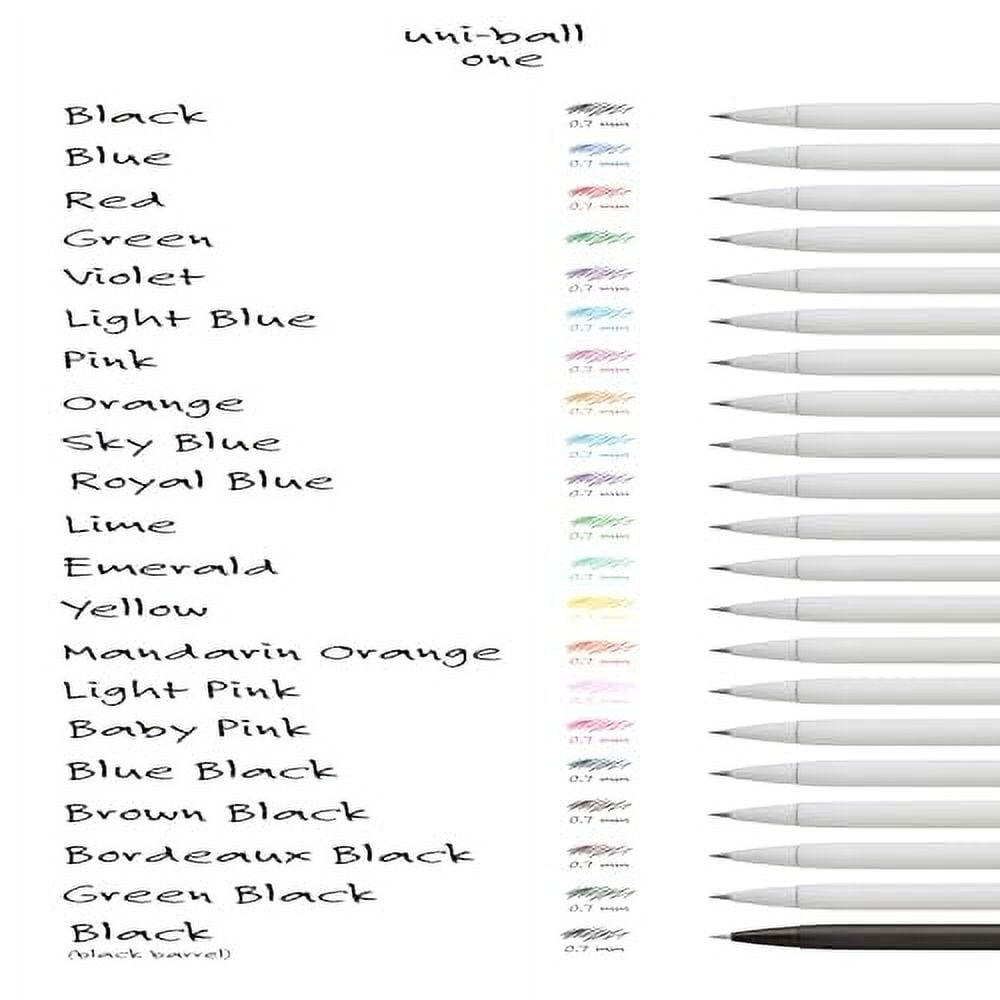 uni-ball
one
Black 0.7 mm
Blue 0.7 mm
Red 0.7 mm
Green
Violet 0.7 mm
Light Blue 0.7 mm
Pink 0.7 mm
Orange 0.7 mm
Sky Blue 0.7 mm
Royal Blue 0.7 mm
Lime 0.7 mm
Emerald 0.7 mm
Yellow
Mandarin Orange 0.7 mm
Light Pink
Baby Pink 0.7 mm
Blue Black 0.7 mm
Brown Black 0.7 mm
Bordeaux Black 0.7 mm
Green Black 0.7 mm
Black 0.7 mm
(black barrel)